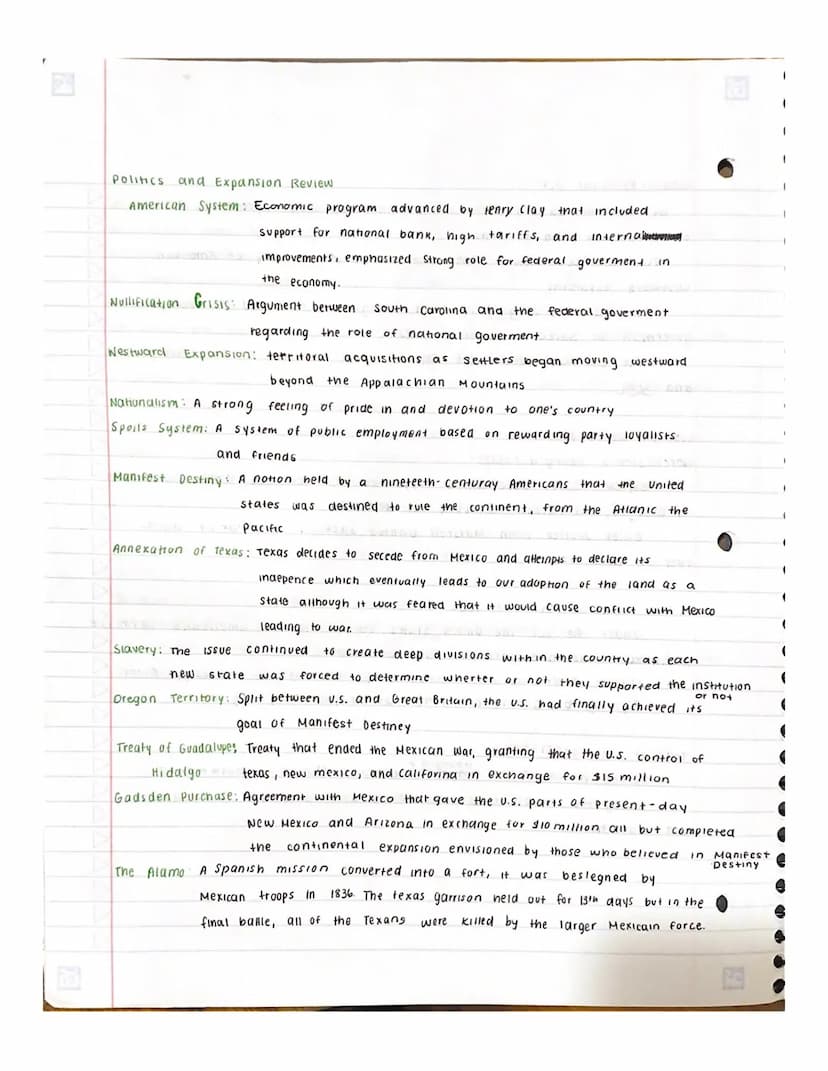 Politics and Expansion Review
American System: Economic program advanced by Henry Clay that included
support for national bank, high tariffs, and internal
improvements, emphasized strong role for federal goverment in
the economy.
Nullification Crisis: Argument between South Carolina and the federal goverment
regarding the role of national goverment
Westward Expansion: territoral acquisitions as settlers began moving westward
beyond the Appalachian Mountains
Nationalism: A strong feeling of pride in and devotion to one's country
Spoils System: A system of public employment based on rewarding party loyalists
and friends
Manifest Destiny: A notion held by a nineteeth-centuray Americans that the United
states was destined to rule the continent, from the Atlanic the
Pacific.
Annexation of Texas: Texas decides to secede from Mexico and attempts to declare its
indepence which eventually leads to our adoption of the land as a
state although it was feared that it would cause conflict with Mexico
leading to war.
Slavery: The issue continued to create deep divisions within the country as each
new state was forced to determine wherter or not they supported the institution
or not
Oregon Territory: Split between U.S. and Great Britain, the U.S. had finally achieved its
goal of Manifest Destiney
Treaty of Guadalupe: Treaty that ended the Mexican war, granting that the U.S. control of
Hidalgo texas, new mexico, and California in exchange for $15 million
Gadsden Purchase: Agreement with Mexico that gave the U.S. parts of present-day
New Mexico and Arizona in exchange for $10 million all but completed
the continental expansion envisioned by those who believed in Manifest
Destiny
The Alamo: A Spanish mission converted into a fort, it was besiegned by
Mexican troops in 1836. The texas garrison held out for 13th days but in the
final battle, all of the Texans were killed by the larger Mexicain force.